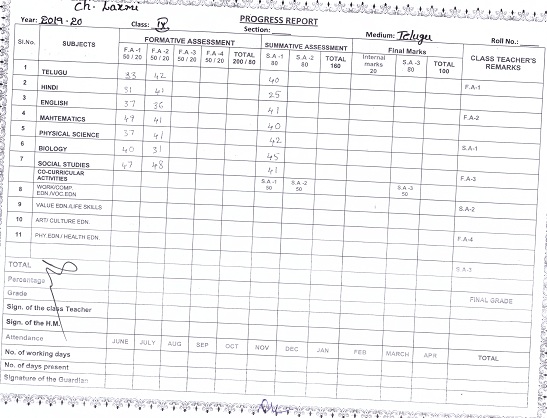 Ch. Laxmi
PROGRESS REPORT
Year: 2019-20 Class: IX Section: Medium: Telugu Roll No.:
Sl.No. SUBJECTS FORMATIVE ASSESSMENT SUMMATIVE ASSESSMENT Final Marks CLASS TEACHER'S REMARKS
F.A -1 50 / 20 F.A -2 50 / 20 F.A -3 50 / 20 F.A -4 50 / 20 TOTAL 200 / 80 S.A -1 80 S.A -2 80 TOTAL 160 Internal marks 20 S.A -3 80 TOTAL 100
1 TELUGU 33 42 40 F.A-1
2 HINDI 31 41 25
3 ENGLISH 37 36 41 F.A-2
4 MAHTEMATICS 49 41 40
5 PHYSICAL SCIENCE 37 41 42 S.A-1
6 BIOLOGY 40 31 45
7 SOCIAL STUDIES 47 48 41 F.A-3
CO-CURRICULAR ACTIVITIES S.A -1 50 S.A -2 50 S.A -3 50
8 WORK/COMP. EDN./VOC.EDN
9 VALUE EDN./LIFE SKILLS S.A-2
10 ART/ CULTURE EDN.
11 PHY.EDN./ HEALTH EDN. F.A-4
TOTAL S.A-3
Percentage
Grade FINAL GRADE
Sign. of the class Teacher
Sign. of the H.M.
Attendance JUNE JULY AUG SEP OCT NOV DEC JAN FEB MARCH APR TOTAL
No. of working days
No. of days present
Signature of the Guardian